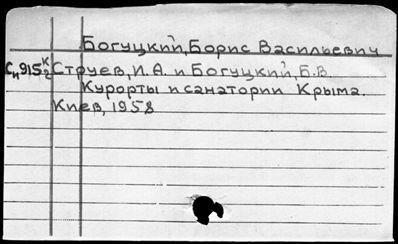 Богуцкий, Борис Васильевич
Струев, И. А. и Богуцкий, Б. В.
Курорты и санатории Крыма.
Киев, 1958